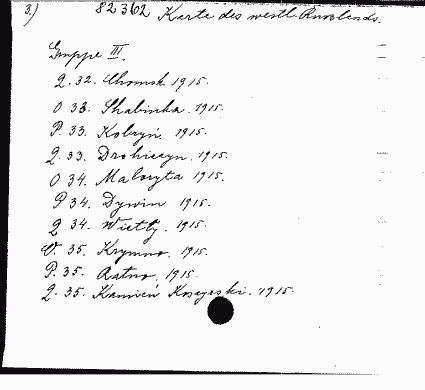 3.) 82362 Karte des westl. Russlands.
Gruppe III.
Q. 32. Chomsk 1915.
O 33. Shabinka. 1915.
P. 33. Kobryń. 1915.
Q. 33. Drohiczyn. 1915.
O 34. Maloryta 1915.
P 34. Dywin 1915.
Q 34. Wietly. 1915.
O. 35. Krymno. 1915.
P. 35. Ratno. 1915.
Q. 35. Kamień Koszyrski. 1915.